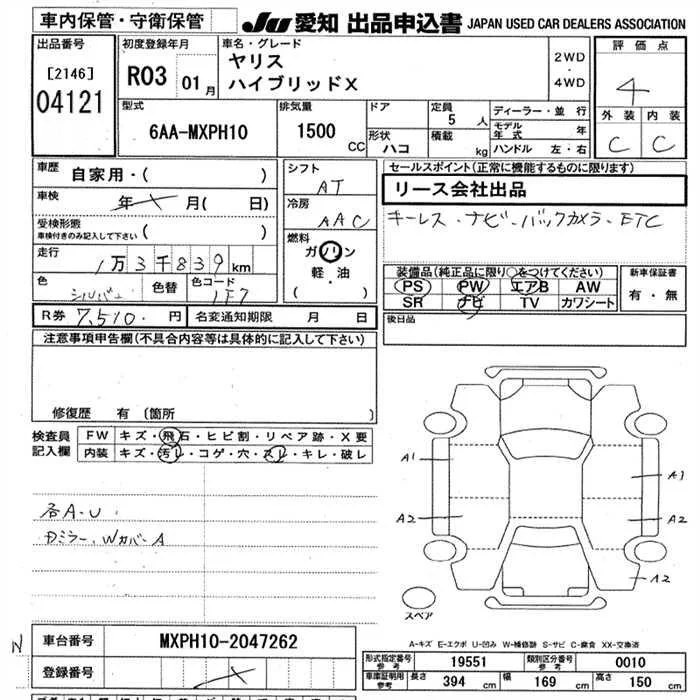 車内保管・守衛保管
JU 愛知 出品申込書 JAPAN USED CAR DEALERS ASSOCIATION
出品番号
[2146]
04121
初度登録年月
R03 01月
車名・グレード
ヤリス
ハイブリッドX
2WD
・
4WD
評価点
4
外装 内装
C C
型式
6AA-MXPH10
排気量
1500 CC
ドア
形状 ハコ
定員 5 人
積載 kg
ディーラー・並行
モデル年式 年
ハンドル 左・右
車歴 自家用・( )
車検 年 月( 日)
受検形態
車検付きのみ記入して下さい ( )
走行
1万3千839km
色 シルバー 色替 色コード 1F7
シフト
AT
冷房
AAC
燃料
ガソリン
軽・油
( )
セールスポイント(正常に機能するものに限ります)
リース会社出品
キーレス・ナビ・バックカメラ・ETC
装備品(純正品に限り○をつけてください)
PS PW エアB AW
SR ナビ TV カワシート
新車保証書
有・無
R券 7,510.円 名変通知期限 月 日
後日品
注意事項申告欄(不具合内容等は具体的に記入して下さい)
修復歴 有 (箇所 )
検査員記入欄
FW キズ・飛石・ヒビ割・リペア跡・X要
内装 キズ・汚レ・コゲ・穴・スレ・キレ・破レ
各A・U
Dミラー・Wカバー A
A1
A1
A2
A2
A2
スペア
A-キズ E-エクボ U-凹み W-補修跡 S-サビ C-腐食 XX-交換済
N
車台番号 MXPH10-2047262
登録番号
形式指定番号 参考 19551 類別区分番号 参考 0010
車庫証明用 参考 長さ 394 cm 幅 169 cm 高さ 150 cm